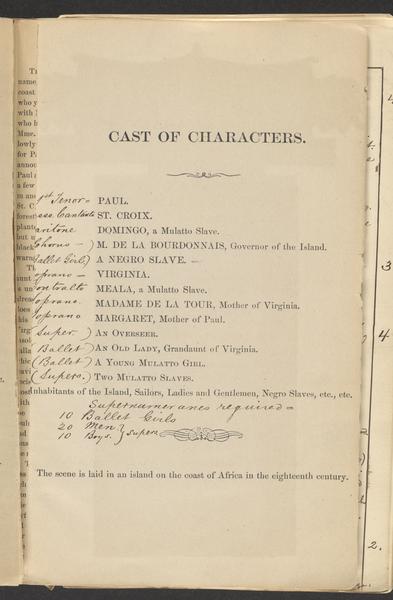 CAST OF CHARACTERS.
1st Tenor = PAUL.
Basso Cantante ST. CROIX.
Baritone DOMINGO, a Mulatto Slave.
Chorus - ) M. DE LA BOURDONNAIS, Governor of the Island.
(Ballet Girl) A NEGRO SLAVE. -
Soprano - VIRGINIA.
Contralto MEALA, a Mulatto Slave.
Soprano. MADAME DE LA TOUR, Mother of Virginia.
Soprano MARGARET, Mother of Paul.
(Super. ) AN OVERSEER.
(Ballet) AN OLD LADY, Grandaunt of Virginia.
(Ballet) A YOUNG MULATTO GIRL.
(Supers.) TWO MULATTO SLAVES.
Inhabitants of the Island, Sailors, Ladies and Gentlemen, Negro Slaves, etc., etc.
Supernumeraries required =
10 Ballet Girls
20 Men }
10 Boys. } Supers
The scene is laid in an island on the coast of Africa in the eighteenth century.
3
4
2.